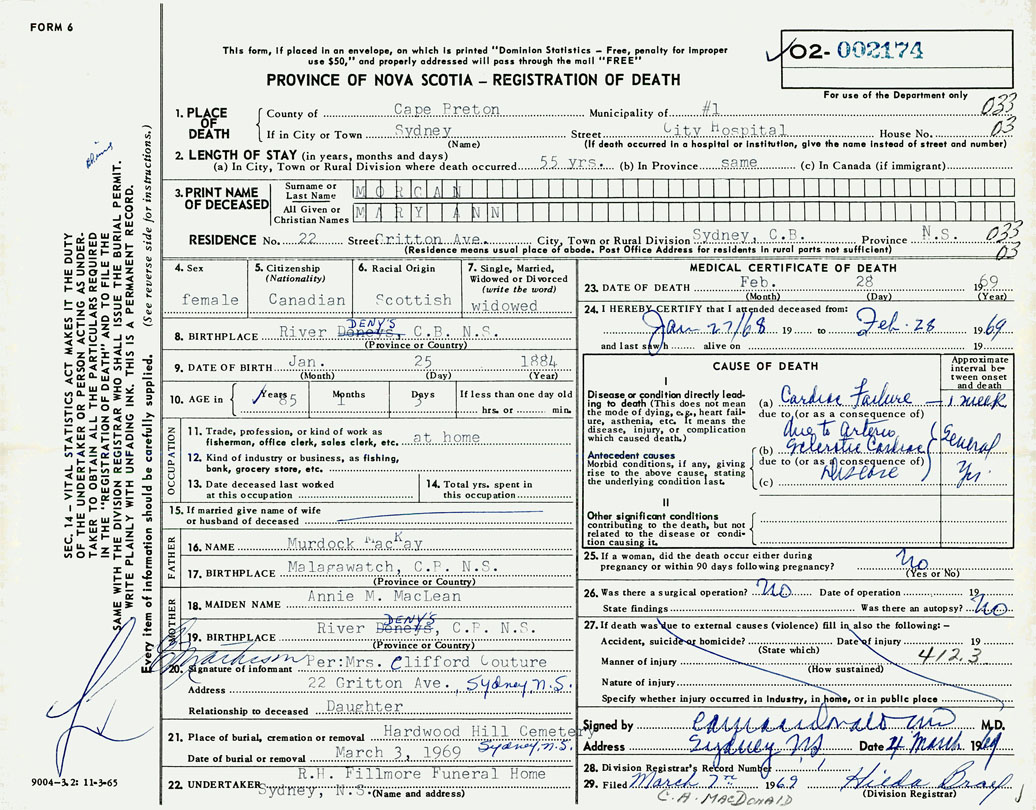 FORM 6
This form, if placed in an envelope, on which is printed "Dominion Statistics – Free, penalty for improper
use $50," and properly addressed will pass through the mail "FREE"
PROVINCE OF NOVA SCOTIA – REGISTRATION OF DEATH
02- 002174
For use of the Department only
1. PLACE OF DEATH
County of Cape Breton Municipality of #1 033
If in City or Town Sydney Street City Hospital House No. 03
(Name) (If death occurred in a hospital or institution, give the name instead of street and number)
2. LENGTH OF STAY (in years, months and days)
(a) In City, Town or Rural Division where death occurred 55 yrs. (b) In Province same (c) In Canada (if immigrant)
3. PRINT NAME OF DECEASED
Surname or Last Name MORGAN
All Given or Christian Names MARY ANN
RESIDENCE No. 22 Street Gritton Ave. City, Town or Rural Division Sydney, C.B. Province N.S. 033
(Residence means usual place of abode. Post Office Address for residents in rural parts not sufficient) 03
4. Sex
female
5. Citizenship
(Nationality)
Canadian
6. Racial Origin
Scottish
7. Single, Married,
Widowed or Divorced
(write the word)
widowed
8. BIRTHPLACE River Deneys DENY'S, C.B. N.S.
(Province or Country)
9. DATE OF BIRTH Jan. 25 1884
(Month) (Day) (Year)
10. AGE in Years 85 Months 1 Days 3 If less than one day old
hrs. or min.
OCCUPATION
11. Trade, profession, or kind of work as
fisherman, office clerk, sales clerk, etc. at home
12. Kind of industry or business, as fishing,
bank, grocery store, etc.
13. Date deceased last worked
at this occupation
14. Total yrs. spent in
this occupation
15. If married give name of wife
or husband of deceased
FATHER
16. NAME Murdock MacKay
17. BIRTHPLACE Malagawatch, C.B. N.S.
(Province or Country)
MOTHER
18. MAIDEN NAME Annie M. MacLean
19. BIRTHPLACE River Deneys DENY'S, C.B. N.S.
(Province or Country)
20. Signature of informant Per:Mrs. Clifford Couture
Address 22 Gritton Ave., Sydney, N.S.
Relationship to deceased Daughter
21. Place of burial, cremation or removal Hardwood Hill Cemetery
Sydney, N.S.
Date of burial or removal March 3, 1969
22. UNDERTAKER R.H. Fillmore Funeral Home
Sydney, N.S. (Name and address)
MEDICAL CERTIFICATE OF DEATH
23. DATE OF DEATH Feb. 28 1969
(Month) (Day) (Year)
24. I HEREBY CERTIFY that I attended deceased from:
Jan 27/68 19 to Feb. 28 1969
and last saw h alive on 19
CAUSE OF DEATH
Approximate
interval be-
tween onset
and death
I
Disease or condition directly lead-
ing to death (This does not mean
the mode of dying, e.g., heart fail-
ure, asthenia, etc. It means the
disease, injury, or complication
which caused death.)
(a) Cardiac Failure – 1 week
due to (or as a consequence of)
due to Arterio
Antecedent causes
Morbid conditions, if any, giving
rise to the above cause, stating
the underlying condition last.
(b) Sclerotic Cardiac Several
due to (or as a consequence of)
(c) Disease Yrs
II
Other significant conditions
contributing to the death, but not
related to the disease or condi-
tion causing it.
25. If a woman, did the death occur either during
pregnancy or within 90 days following pregnancy? No
(Yes or No)
26. Was there a surgical operation? No Date of operation 19
State findings Was there an autopsy? No
27. If death was due to external causes (violence) fill in also the following: –
Accident, suicide or homicide? Date of injury 19
(State which) 412.3
Manner of injury
(How sustained)
Nature of injury
Specify whether injury occurred in industry, in home, or in public place
Signed by M.D.
Address Sydney NS Date 4 March 1969
28. Division Registrar's Record Number
29. Filed March 7th 1969 Hilda Bray
C.A. MACDONALD (Division Registrar)
SEC. 14 – VITAL STATISTICS ACT MAKES IT THE DUTY
OF THE UNDERTAKER OR PERSON ACTING AS UNDER-
TAKER TO OBTAIN ALL THE PARTICULARS REQUIRED
IN THE "REGISTRATION OF DEATH" AND TO FILE THE
SAME WITH THE DIVISION REGISTRAR WHO SHALL ISSUE THE BURIAL PERMIT.
WRITE PLAINLY WITH UNFADING INK. THIS IS A PERMANENT RECORD.
Every item of information should be carefully supplied. (See reverse side for instructions.)
9004–3.2: 11-3-65